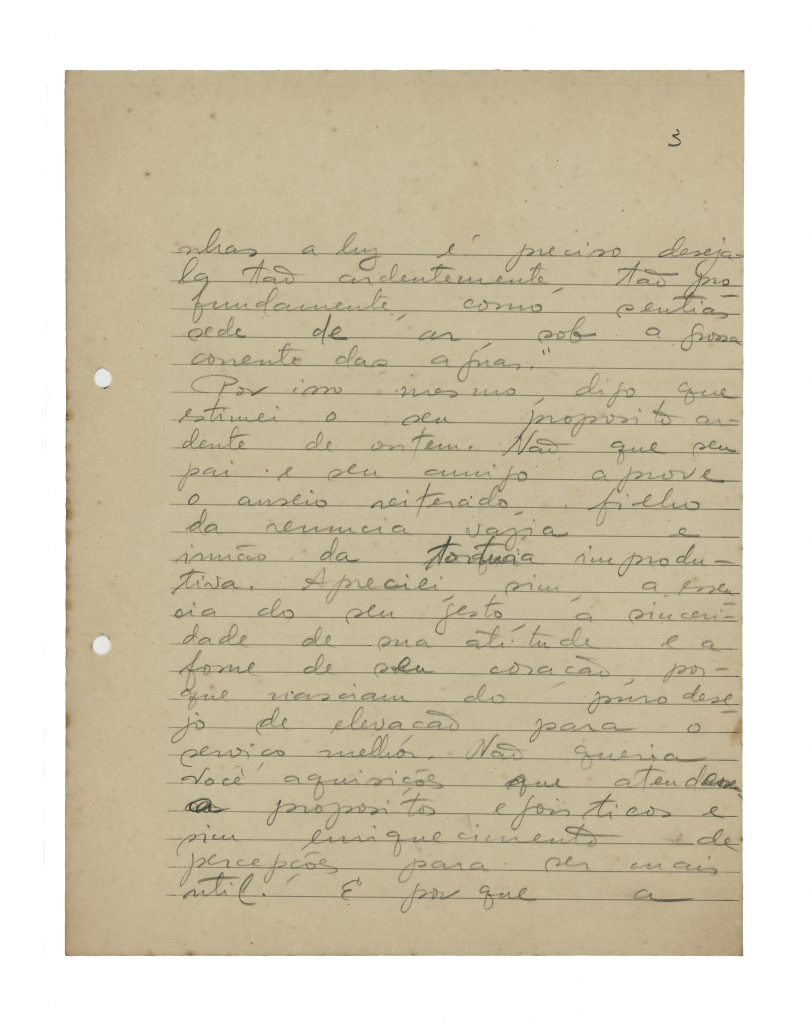 3
nhas a luz é preciso deseja-
la tão ardentemente, tão pro
fundamente, como sentias
sede de ar, sob a grossa
corrente das aguas."
Por isso mesmo, digo que
estimei o seu proposito ar-
dente de ontem. Não que seu
pai e seu amigo aprove
o anseio reiterado, filho
da renuncia vazia e
irmão da tortura improdu-
tiva. Apreciei, sim, a essen
cia do seu gesto, a sinceri-
dade de sua atitude e a
fome de seu coração, por-
que nasciam do puro dese-
jo de elevação para o
serviço melhor. Não queria
você aquisições que atendessem
a propositos egoisticos e
sim enriquecimento de
percepções para ser mais
util. E porque a